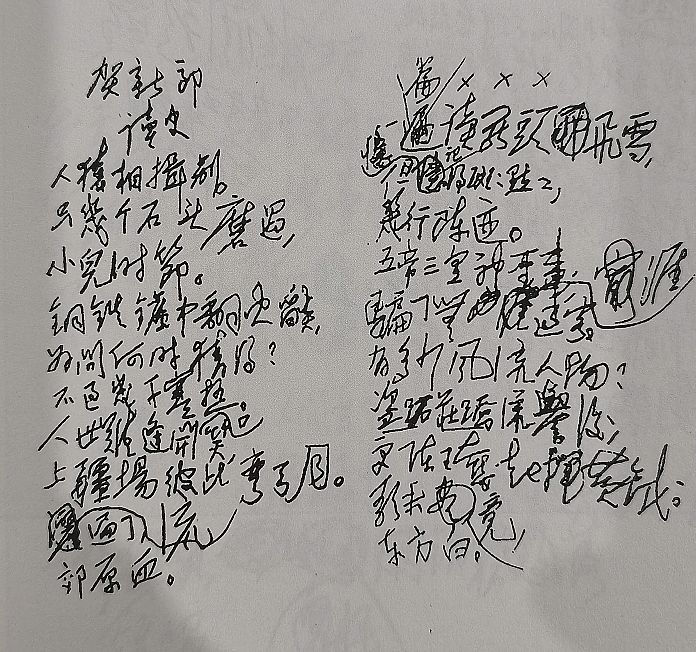 贺新郎
读史
人猿相揖别。
只几个石头磨过,
小儿时节。
铜铁炉中翻火焰,
为问何时猜得?
不过几千寒热。
人世难逢开口笑,
上疆场彼此弯弓月。
流遍了,
郊原血。
一篇读罢头飞雪,
但记得斑斑点点,
几行陈迹。
五帝三皇神圣事,
骗了无涯过客。
有多少风流人物?
盗跖庄蹻流誉后,
更陈王奋起挥黄钺。
歌未竟,
东方白。